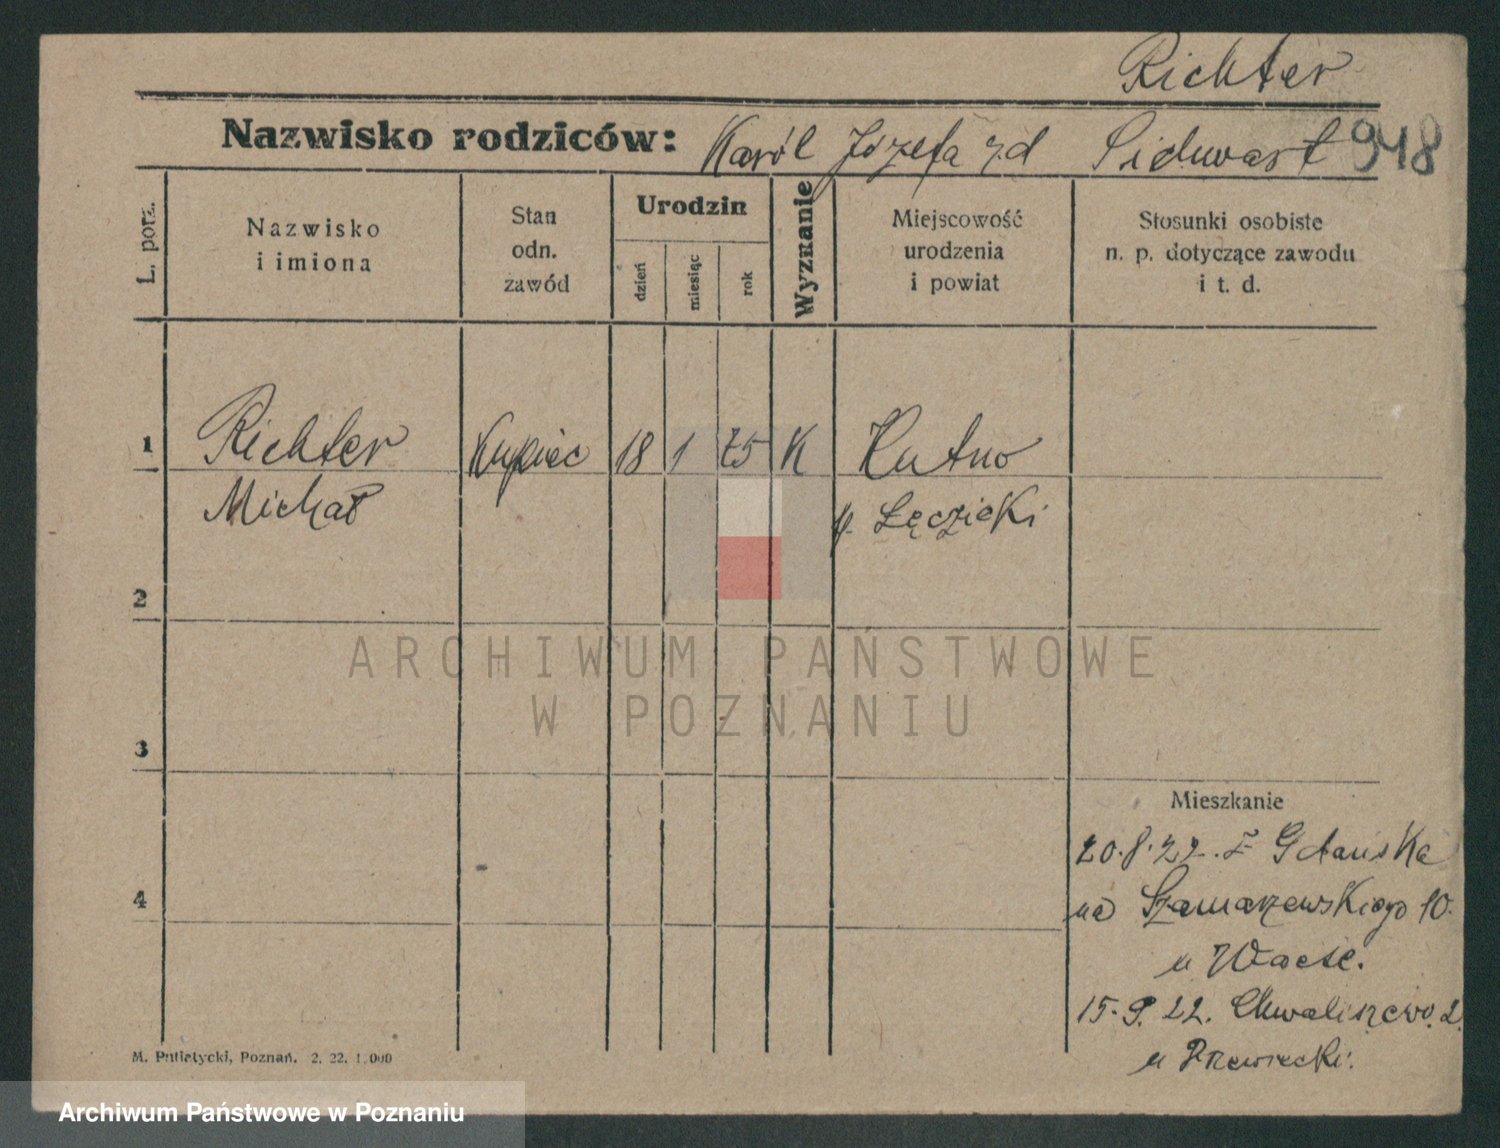 Richter
Nazwisko rodziców: Karól Józefa zd 948
L. porz.
Nazwisko
i imiona
Stan
odn.
zawód
Urodzin
dzień
miesiąc
rok
Wyznanie
Miejscowość
urodzenia
i powiat
Stosunki osobiste
n. p. dotyczące zawodu
i t. d.
1 Richter Kupiec 18 1 75 K Kutno
Michał p. Łęczicki
2
ARCHIWUM PAŃSTWOWE
W POZNANIU
3
Mieszkanie
20.8.22. z Gdańska
4
na Szamarzewskiego 10.
u
15.9.22. Chwaliszewo 2.
u
M. Putiatycki, Poznań. 2. 22. 1.000
Archiwum Państwowe w Poznaniu